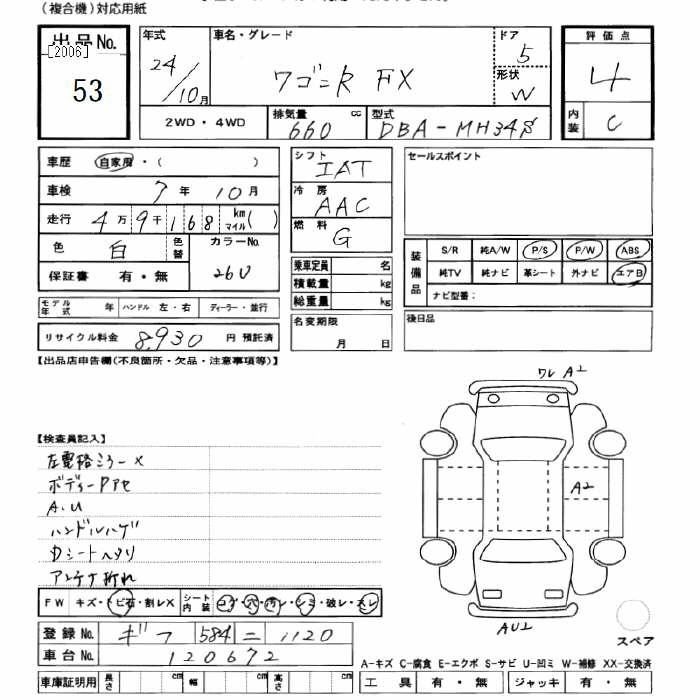 (複合機)対応用紙
出品No. [2006] 53
年式 24/10月
車名・グレード ワゴンR FX
ドア 5
形状 W
評価点 4
内装 C
2WD・4WD
排気量 660 cc
型式 DBA-MH34S
車歴 自家用・( )
車検 7年 10月
走行 4万9千168 km マイル( )
色 白 色替
カラーNo. 26U
保証書 有・無
モデル年式 年 ハンドル 左・右 ディーラー・並行
リサイクル料金 8,930 円 預託済
シフト IAT
冷房 AAC
燃料 G
乗車定員 名
積載量 kg
総重量 kg
名変期限 月 日
セールスポイント
装備品 S/R 純A/W P/S P/W ABS
純TV 純ナビ 革シート 外ナビ エアB
ナビ型番:
後日品
【出品店申告欄(不良箇所・欠品・注意事項等)】
【検査員記入】
左電格ミラー×
ボディーPアセ
A.U
ハンドルハゲ
Dシートヘタリ
アンテナ折れ
ワレ A1
A2
AU1
スペア
FW キズ・トビ石・割レX シート内装 コゲ・穴・汚レ・シミ・破レ・スレ
登録No. ギフ 584 ニ 1120
車台No. 120672
車庫証明用 長さ cm 幅 cm 高さ cm
A-キズ C-腐食 E-エクボ S-サビ U-凹ミ W-補修 XX-交換済
工具 有・無 ジャッキ 有・無